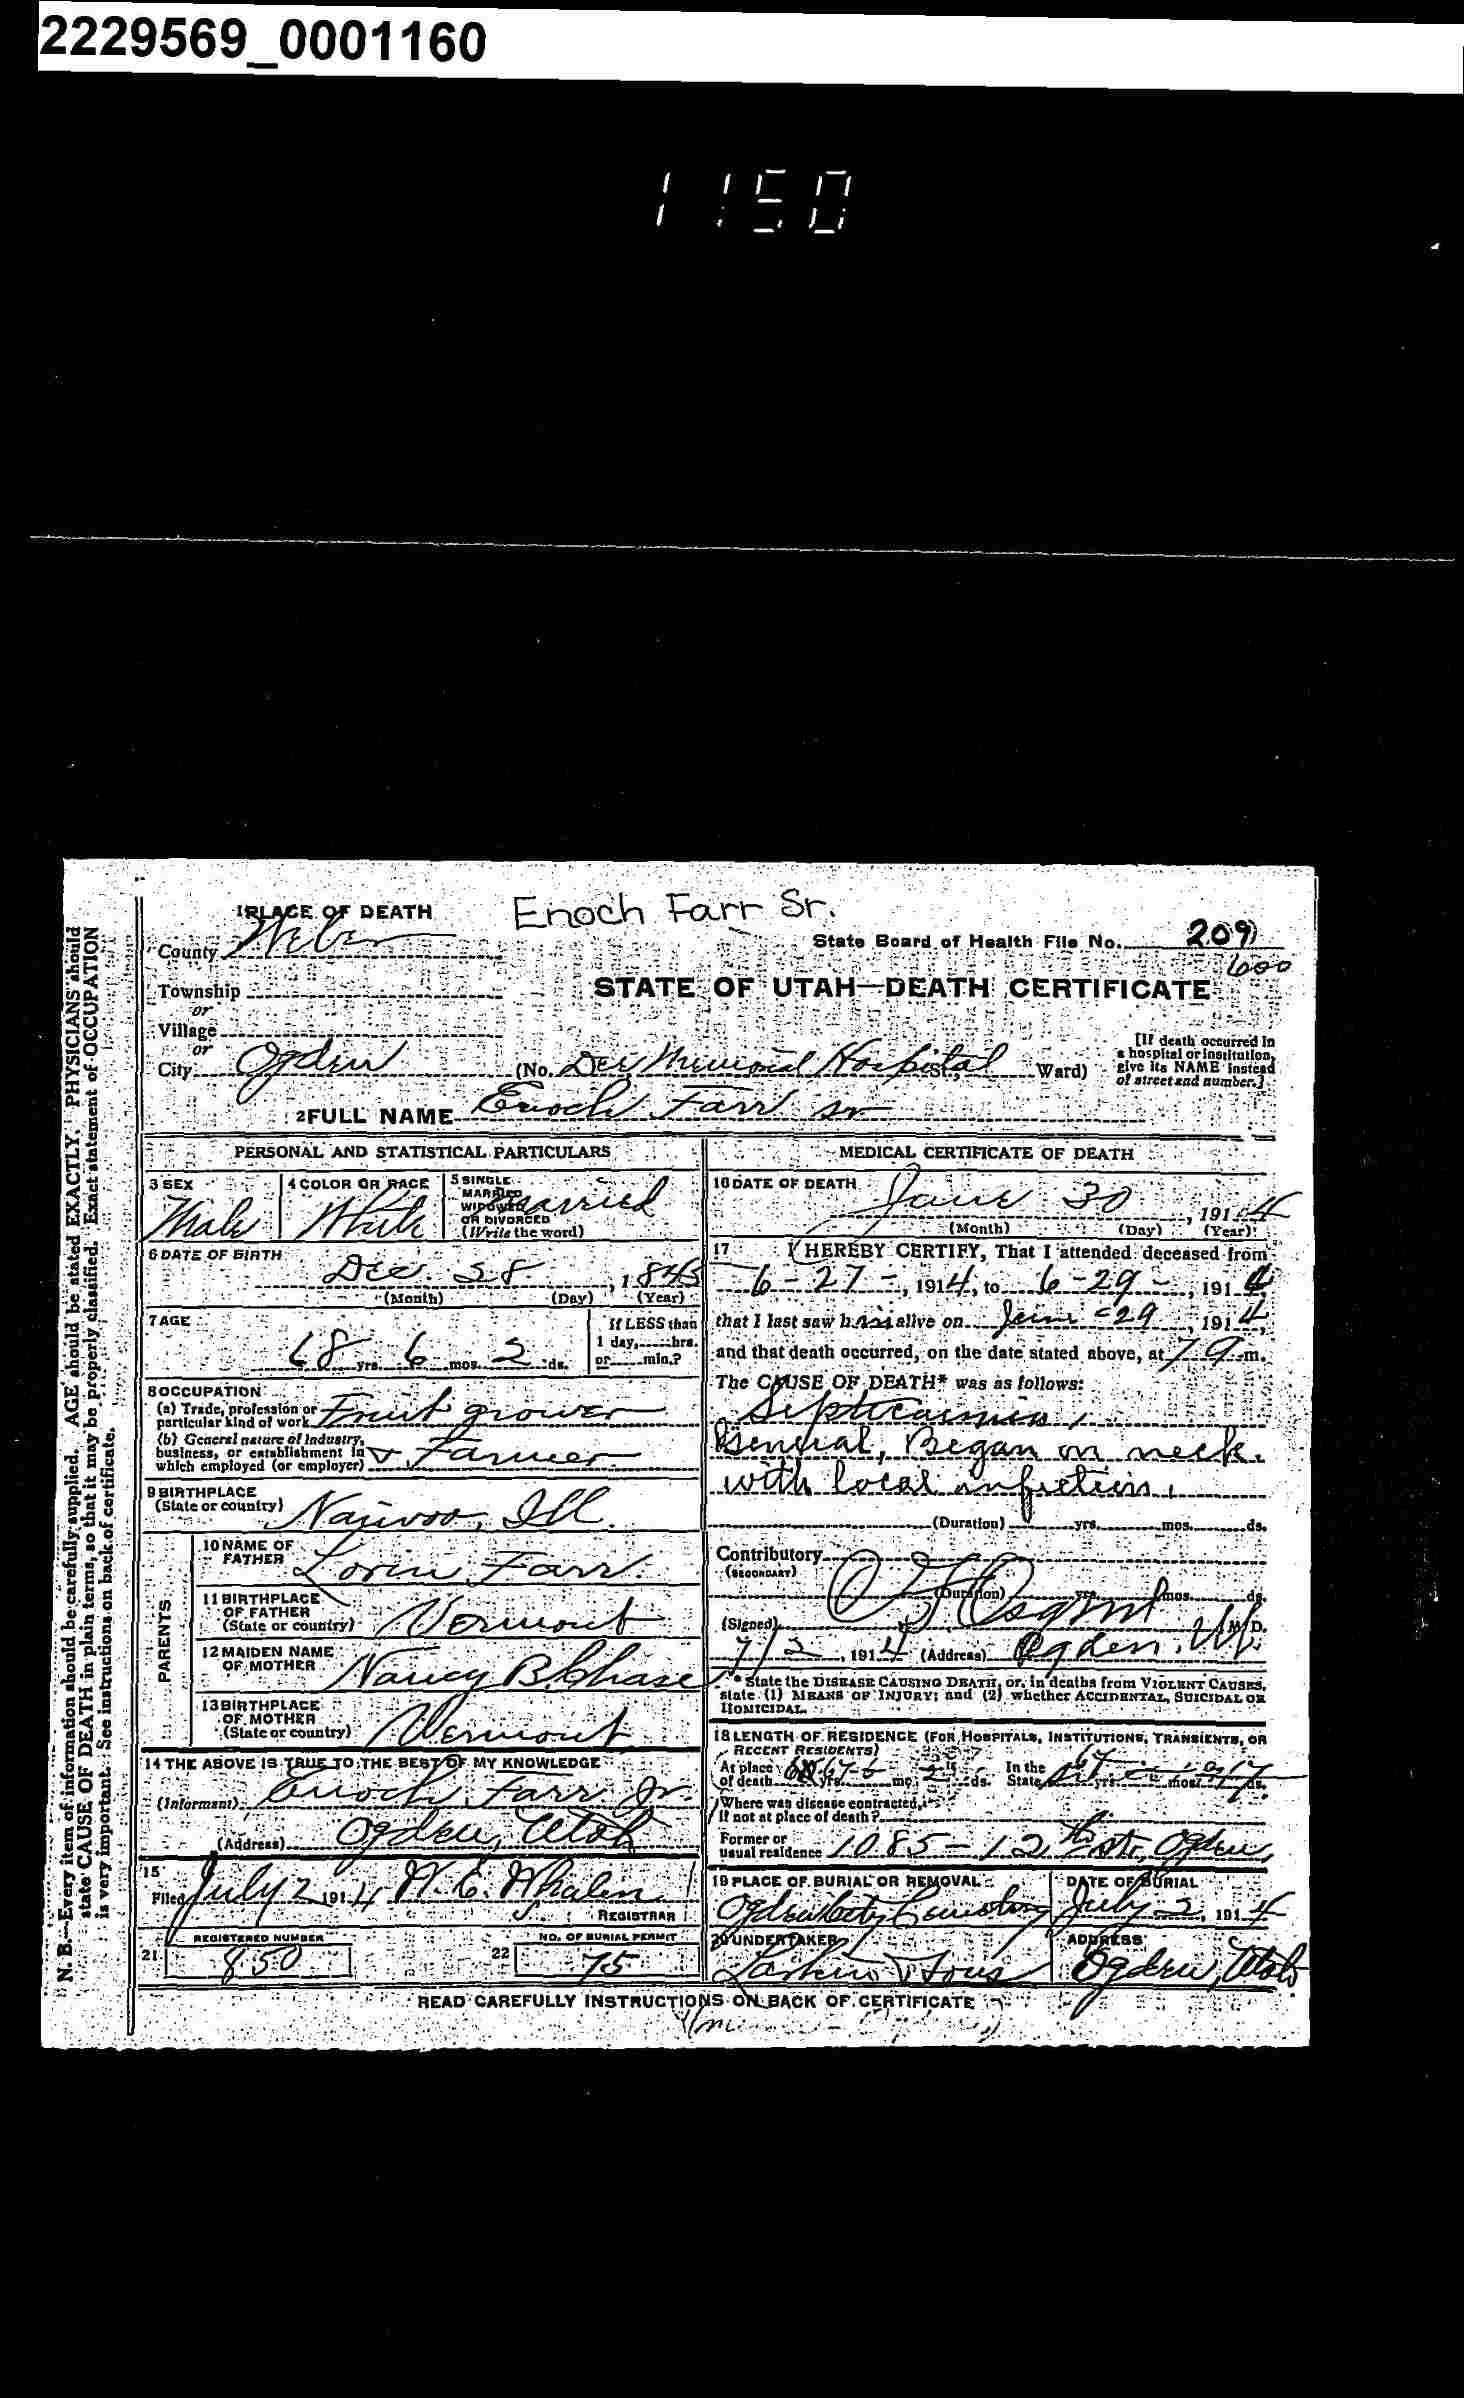 2229569_0001160
1150
1 PLACE OF DEATH
Enoch Farr Sr.
County Weber
State Board of Health File No. 209
600
Township
or
STATE OF UTAH—DEATH CERTIFICATE
Village
or
City Ogden (No. Dee Memorial Hospital St., Ward)
[If death occurred in
a hospital or institution,
give its NAME instead
of street and number.]
2 FULL NAME Enoch Farr Sr
PERSONAL AND STATISTICAL PARTICULARS
3 SEX
Male
4 COLOR OR RACE
White
5 SINGLE
MARRIED
WIDOWED
OR DIVORCED
(Write the word)
Married
6 DATE OF BIRTH
Dec. 28, 1845
(Month) (Day) (Year)
7 AGE
68 yrs. 6 mos. 2 ds.
If LESS than
1 day, hrs.
or min.?
8 OCCUPATION
(a) Trade, profession or
particular kind of work Fruit grower
(b) General nature of Industry,
business, or establishment in
which employed (or employer) & Farmer
9 BIRTHPLACE
(State or country)
Nauvoo, Ill.
PARENTS
10 NAME OF
FATHER
Lorin Farr.
11 BIRTHPLACE
OF FATHER
(State or country)
Vermont
12 MAIDEN NAME
OF MOTHER
Nancy B. Chase
13 BIRTHPLACE
OF MOTHER
(State or country)
Vermont
14 THE ABOVE IS TRUE TO THE BEST OF MY KNOWLEDGE
(Informant) Enoch Farr Jr.
(Address) Ogden, Utah
15
Filed July 2 1914 W. E. Whalen
REGISTRAR
REGISTERED NUMBER
21 850
NO. OF BURIAL PERMIT
22 75
MEDICAL CERTIFICATE OF DEATH
16 DATE OF DEATH
June 30, 1914
(Month) (Day) (Year)
17 I HEREBY CERTIFY, That I attended deceased from
6-27-, 1914, to 6-29-, 1914,
that I last saw him alive on June-29, 1914,
and that death occurred, on the date stated above, at 7 m.
The CAUSE OF DEATH* was as follows:
Septicaemia,
General, Began on neck.
with local infection.
(Duration) yrs. mos. ds.
Contributory
(SECONDARY)
(Duration) yrs. mos. ds.
(Signed) Osgood M.D.
7/2, 1914 (Address) Ogden, Ut.
* State the DISEASE CAUSING DEATH, or, in deaths from VIOLENT CAUSES,
state (1) MEANS OF INJURY; and (2) whether ACCIDENTAL, SUICIDAL OR
HOMICIDAL.
18 LENGTH OF RESIDENCE (FOR HOSPITALS, INSTITUTIONS, TRANSIENTS, OR
RECENT RESIDENTS)
At place
of death 67 yrs. mo. ds. In the
State 67 yrs. mos. ds.
Where was disease contracted,
If not at place of death?
Former or
usual residence 1085-12th str, Ogden,
19 PLACE OF BURIAL OR REMOVAL
Ogden City Cemetery
DATE OF BURIAL
July 2, 1914
20 UNDERTAKER
Larkin & Sons
ADDRESS
Ogden, Utah
READ CAREFULLY INSTRUCTIONS ON BACK OF CERTIFICATE
N. B.—Every item of information should be carefully supplied. AGE should be stated EXACTLY. PHYSICIANS should
state CAUSE OF DEATH in plain terms, so that it may be properly classified. Exact statement of OCCUPATION
is very important. See instructions on back of certificate.